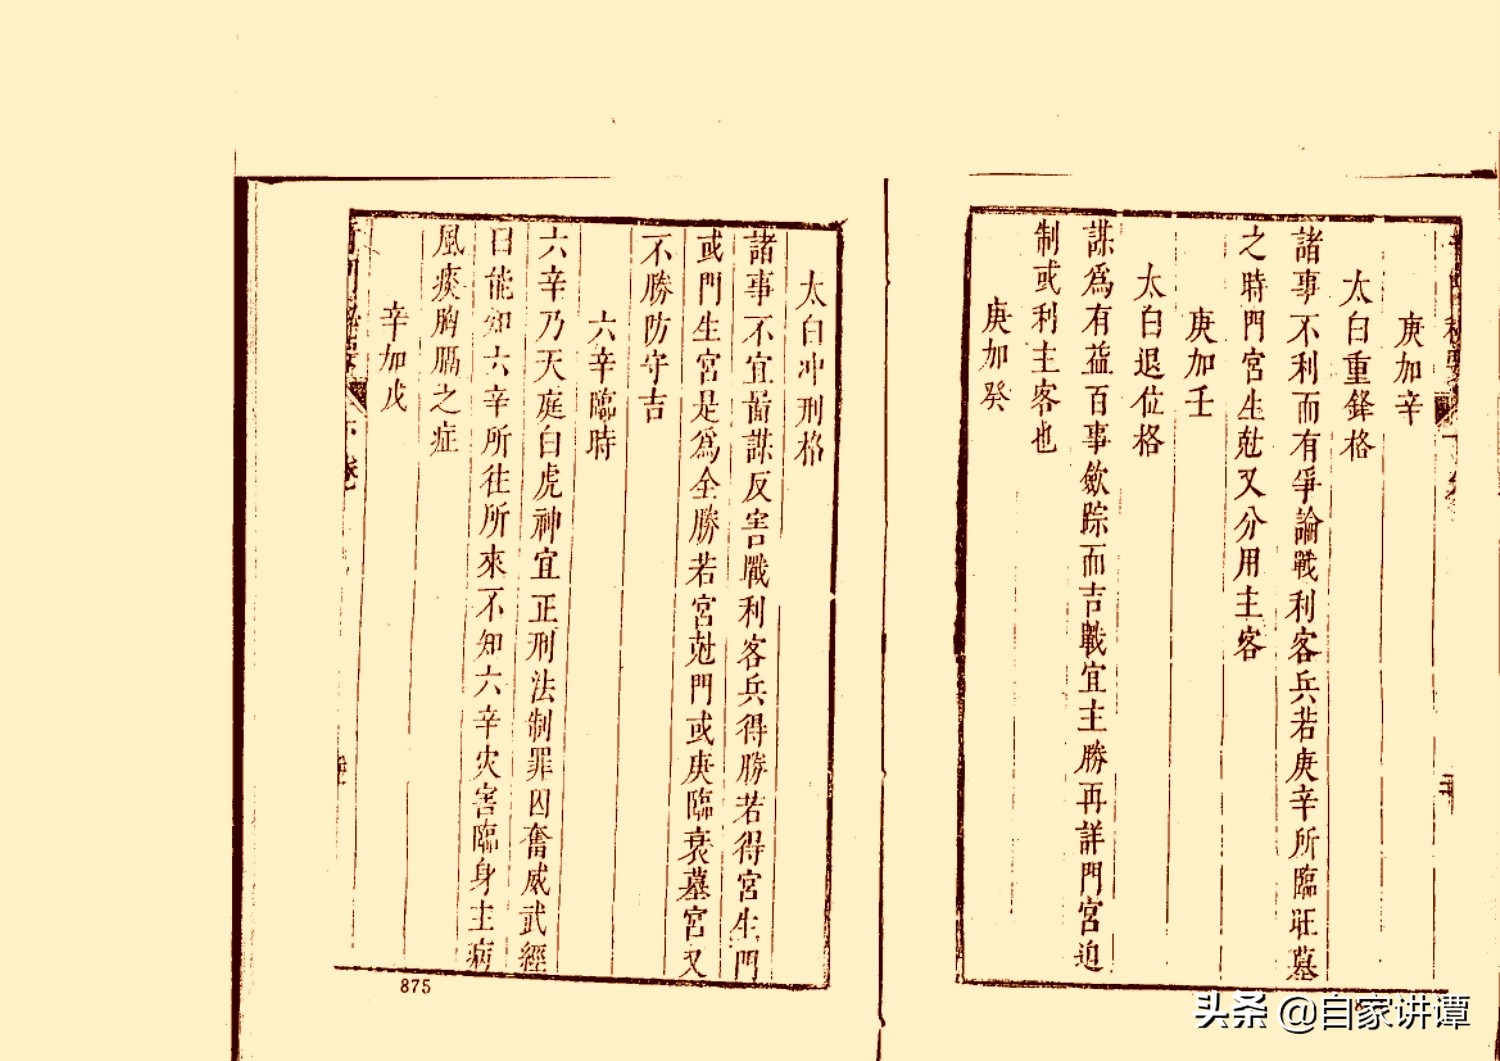 庚加辛
太白重鋒格
諸事不利而有爭論戰利客兵若庚辛所臨旺墓
之時門宮生尅又分用主客
庚加壬
太白退位格
謀爲有益百事歛踪而吉戰宜主勝再詳門宮迫
制或利主客也
庚加癸
太白冲刑格
諸事不宜啚謀反害戰利客兵得勝若得宮生門
或門生宮是爲全勝若宮尅門或庚臨衰墓宮又
不勝防守吉
六辛臨時
六辛乃天庭白虎神宜正刑法制罪囚奮威武經
曰能知六辛所往所來不知六辛灾害臨身主病
風痰胸膈之症
辛加戊
下卷
875
头条 @自家讲谭